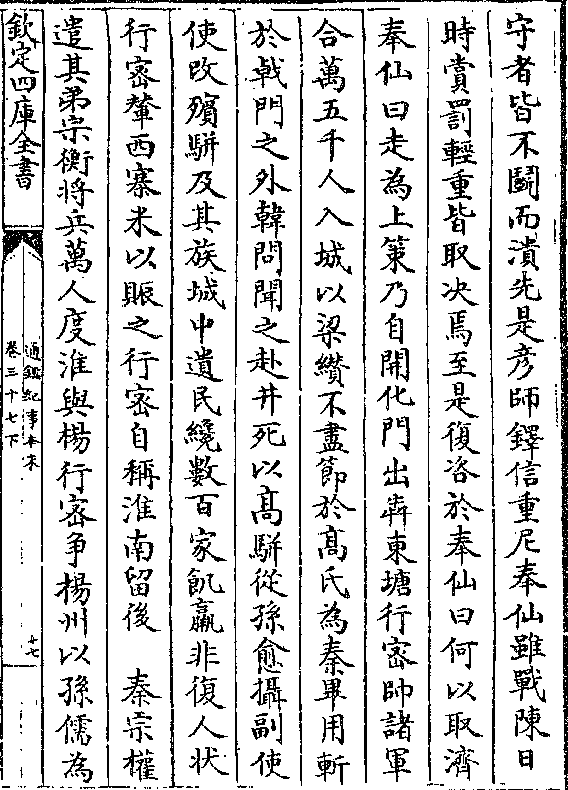 守者皆不鬭而潰先是彦師鐸信重尼奉仙雖戰陳日
時賞罰輕重皆取决焉至是復咨於奉仙曰何以取濟
奉仙曰走為上策乃自開化門出奔東塘行宻帥諸軍
合萬五千人入城以梁纘不盡節於髙氏為秦畢用斬
於㦸門之外韓問聞之赴井死以髙駢從孫愈攝副使
使改殯駢及其族城中遺民纔數百家飢羸非復人状
行宻輦西寨米以賑之行宻自稱淮南留後　秦宗權
遣其弟宗衡将兵萬人度淮與楊行宻争揚州以孫儒為
欽定四庫全書
通鑑紀事本末
卷三十七下
十七